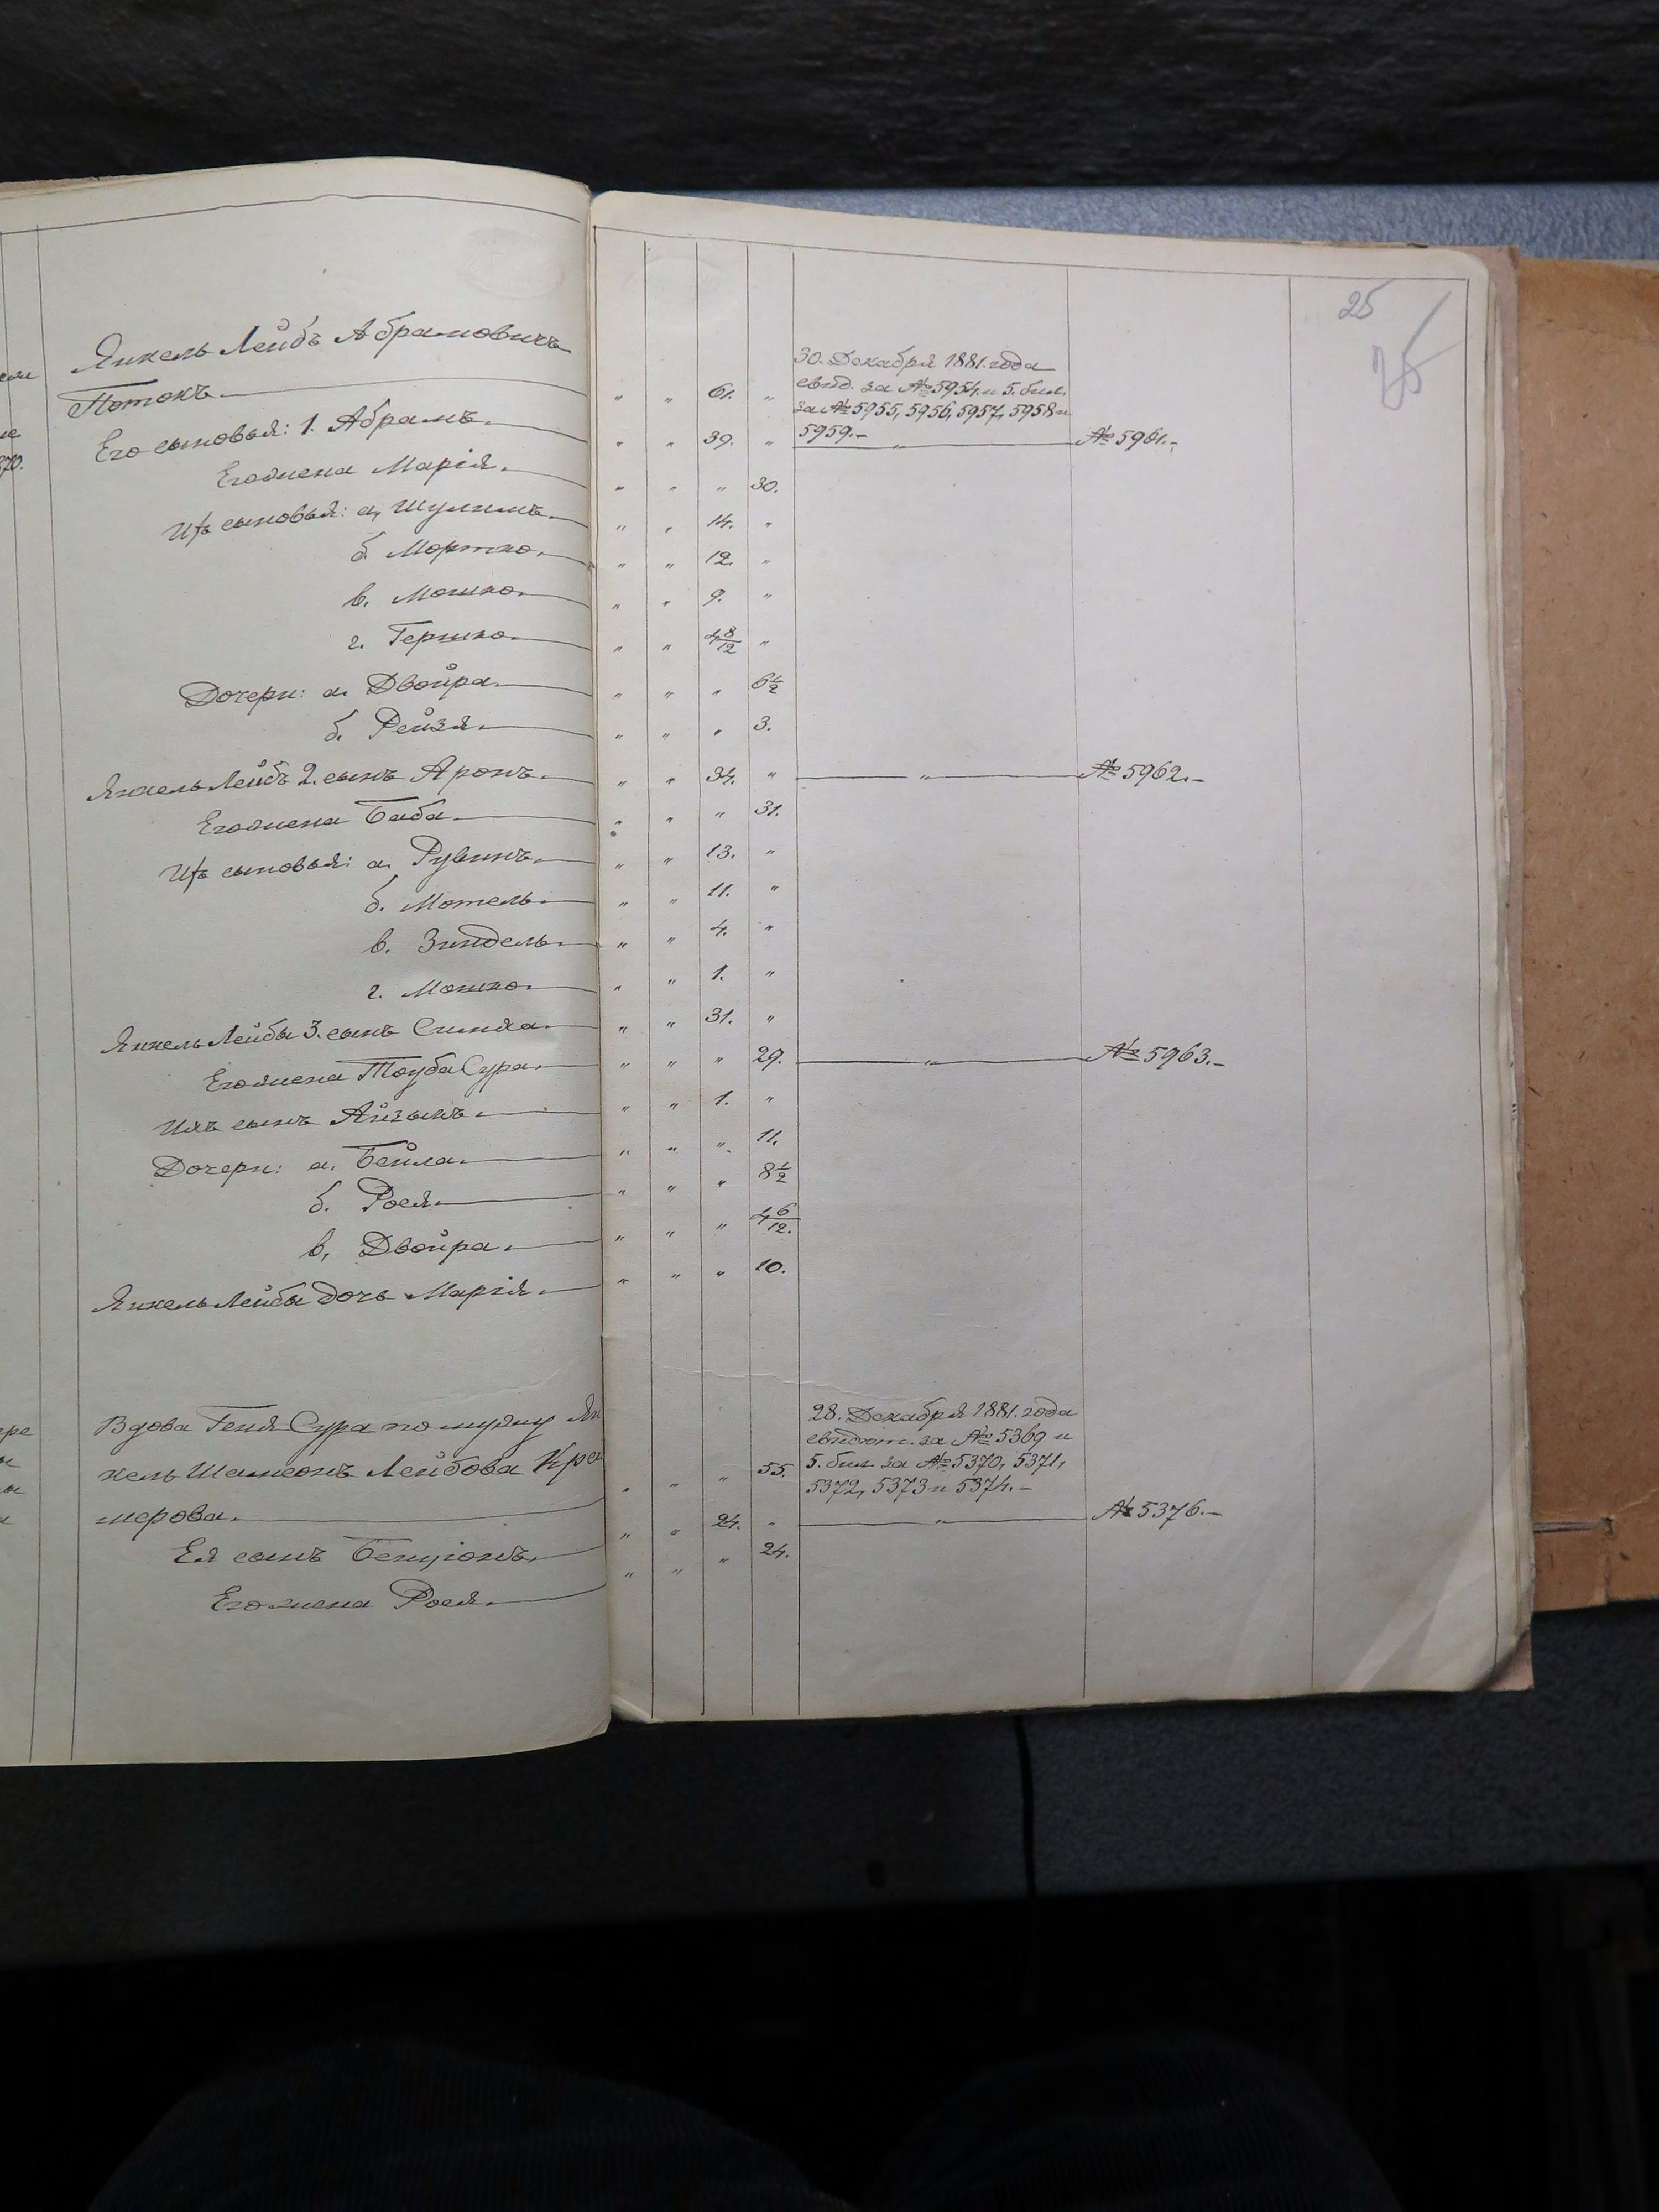 25
75
Янкель Лейбъ Абрамовичъ
Потокъ. " " 61. "
30. Декабря 1881. года
свид. за № 5954. и 5. бил.
за № 5955, 5956, 5957, 5958 и
5959.-
Его сыновья: 1. Абрамъ. " " 39. " " № 5961.-
Его жена Марія. " " " 30.
Ихъ сыновья: а, Шулимъ. " " 14. "
б. Мортко. " " 12. "
в. Мошко. " " 9. "
г. Гершко. " " 4 8/12 "
Дочери: а. Двойра. " " " 6 1/2
б. Рейзя. " " " 3.
Янкель Лейбъ 2. сынъ Аронъ. " " 34. " " № 5962.-
Его жена Баба. " " " 31.
Ихъ сыновья: а. Рувинъ. " " 13. "
б. Мотель. " " 11. "
в. Зиндель. " " 4. "
г. Мошко. " " 1. "
Янкель Лейбы 3. сынъ Симха. " " 31. "
Его жена Тауба Сура. " " " 29. " № 5963.-
Ихъ сынъ Айзыкъ. " " 1. "
Дочери: а. Бейла. " " " 11.
б. Рося. " " " 8 1/2
в, Двойра. " " " 4 6/12.
Янкель Лейбы дочь Марія. " " " 10.
Вдова Геня Сура по мужу Ян
кель Шамсонъ Лейбова Кре
мерова. " " " 55.
28. Декабря 1881. года
свидѣт. за № 5369 и
5. бил. за № 5370, 5371,
5372, 5373 и 5374.-
Ея сынъ Бенціонъ. " " 24. " " № 5376.-
Его жена Рося. " " " 24.